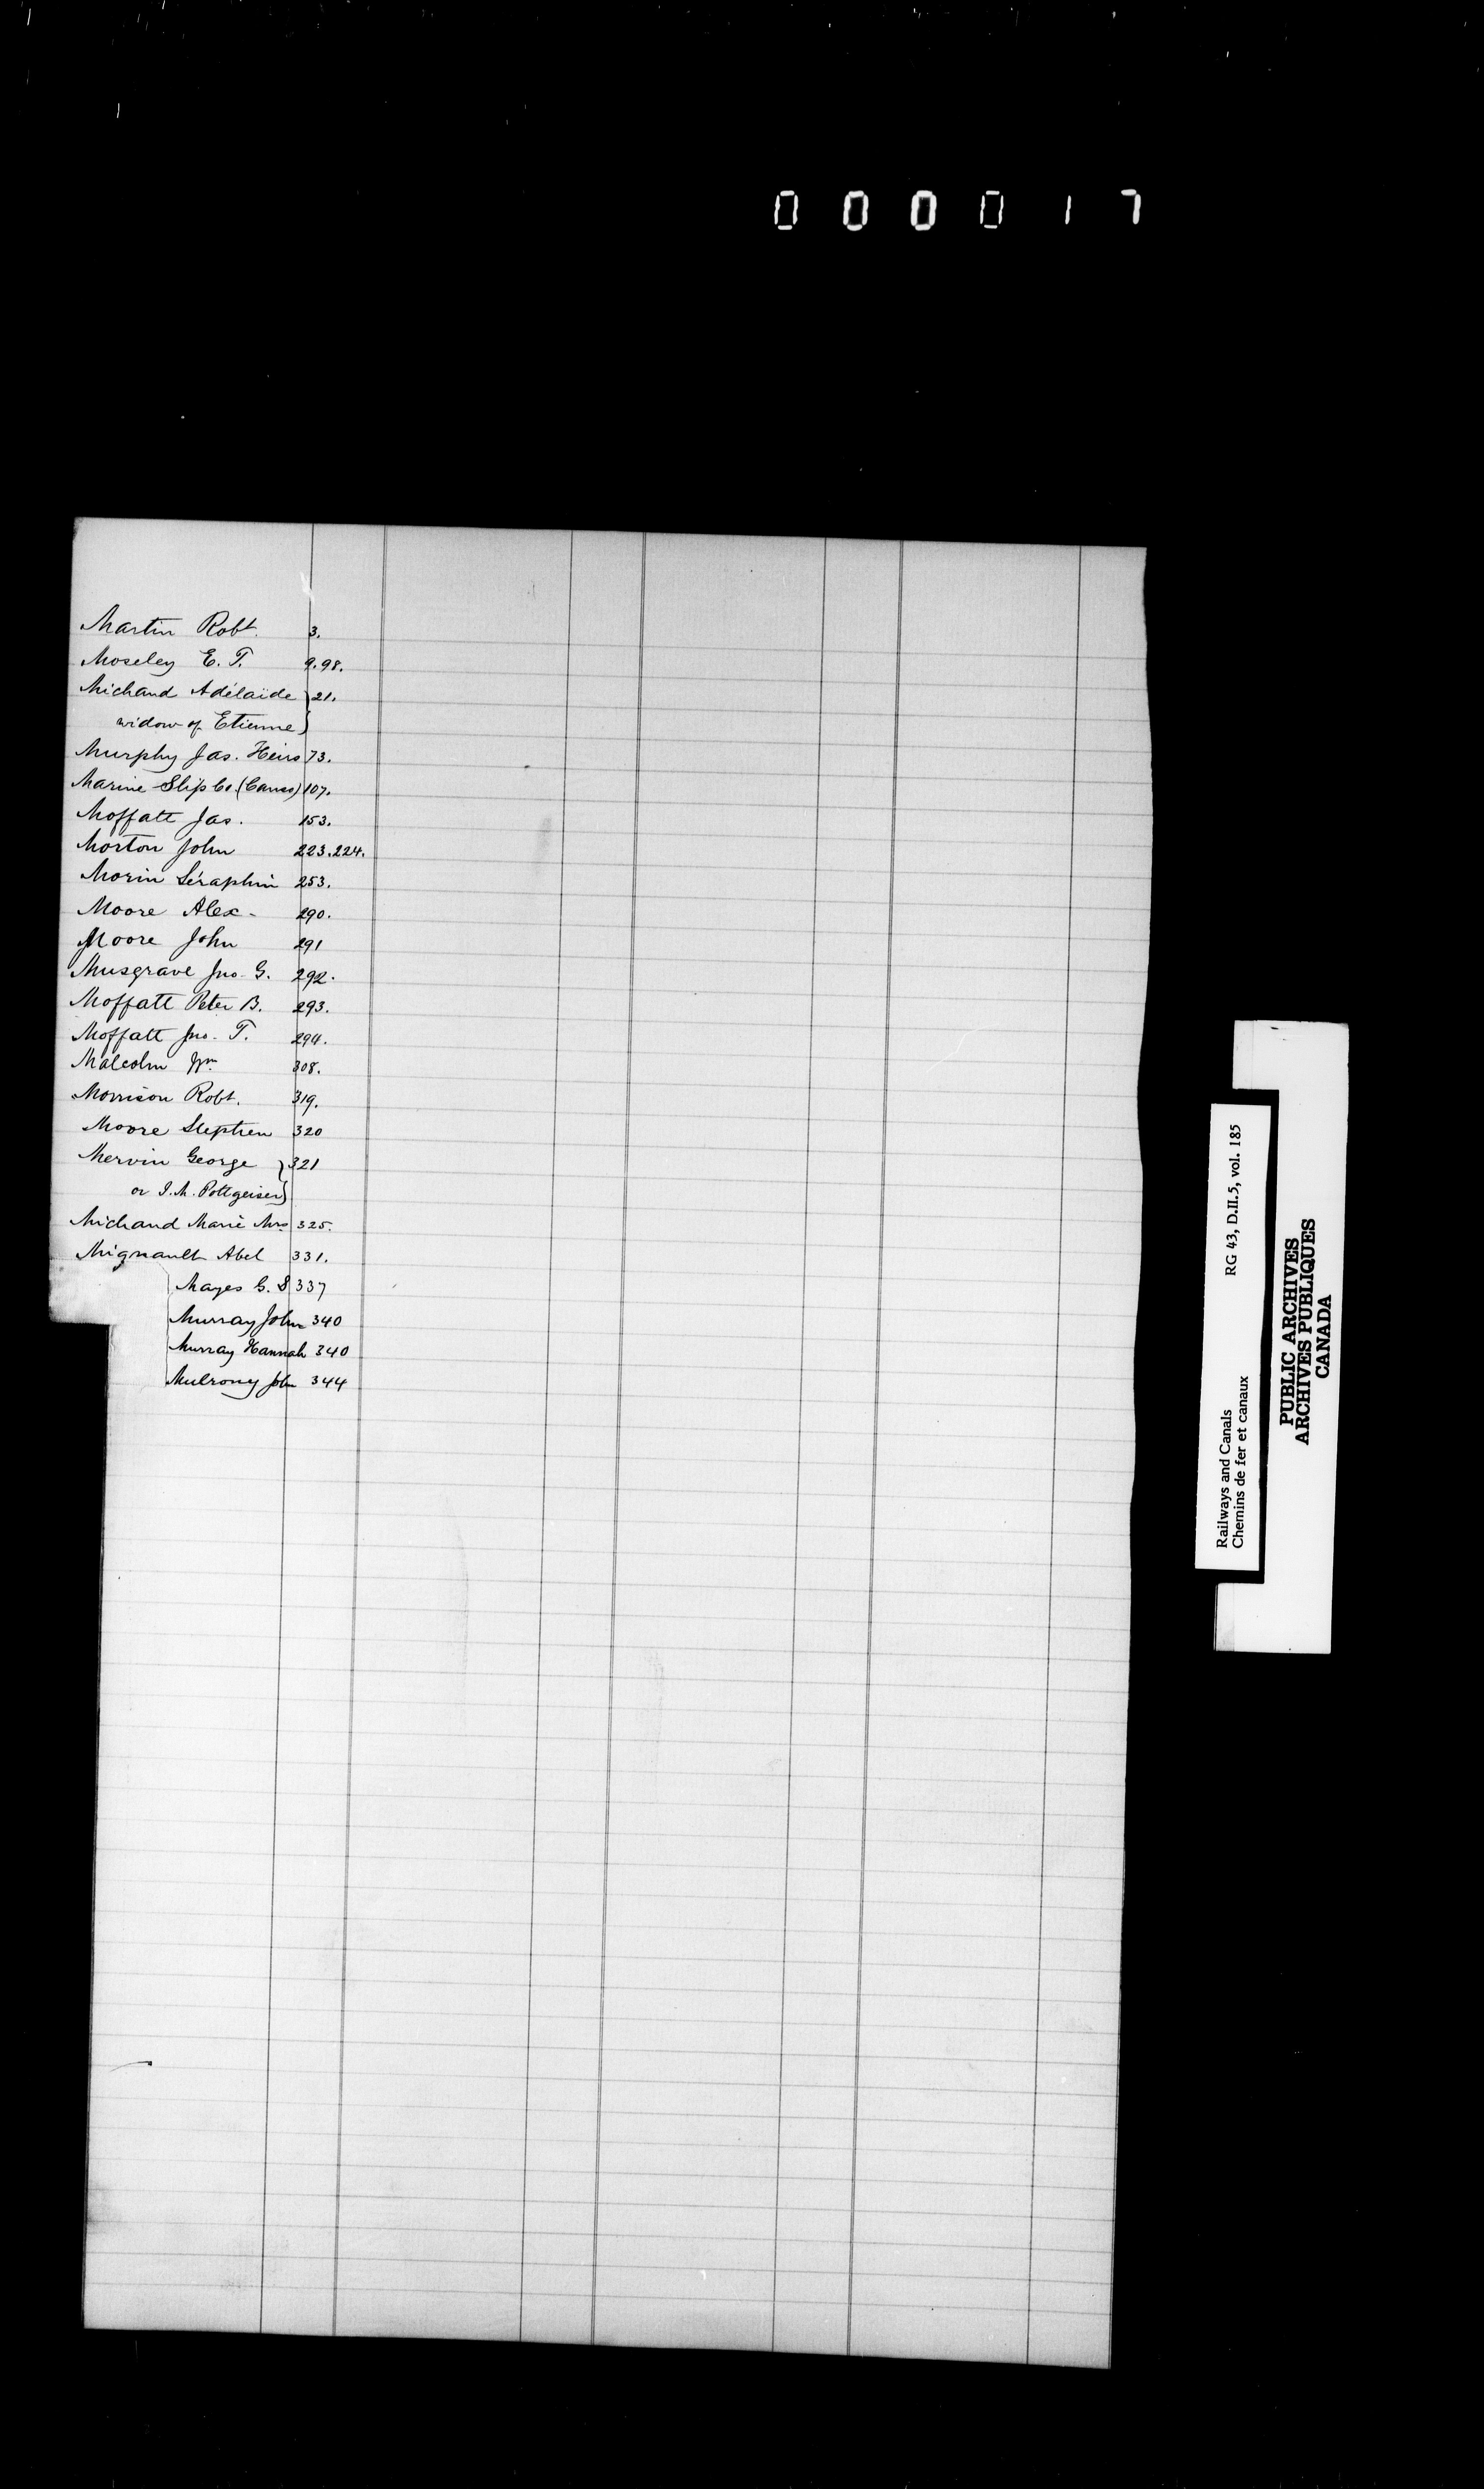 000017
Martin Robt. 3.
Moseley E. T. 9.98.
Michaud Adélaïde } 21.
widow of Etienne }
Murphy Jas. Heirs 73.
Marine Slip Co. (Canso) 107.
Moffatt Jas. 153.
Morton John 223.224.
Morin Séraphin 253.
Moore Alex- 290.
Moore John 291
Musgrave Jno. G. 292.
Moffatt Peter B. 293.
Moffatt Jno. T. 294.
Malcolm Wm. 308.
Morrison Robt. 319.
Moore Stephen 320
Mervin George } 321
or I. M. Pottgeiser }
Michaud Marie Mrs 325.
Mignault Abel 331.
Mayes G. S 337
Murray John 340
Murray Hannah 340
Mulrony John 344
Railways and Canals RG 43, D.II.5, vol. 185
Chemins de fer et canaux
PUBLIC ARCHIVES
ARCHIVES PUBLIQUES
CANADA